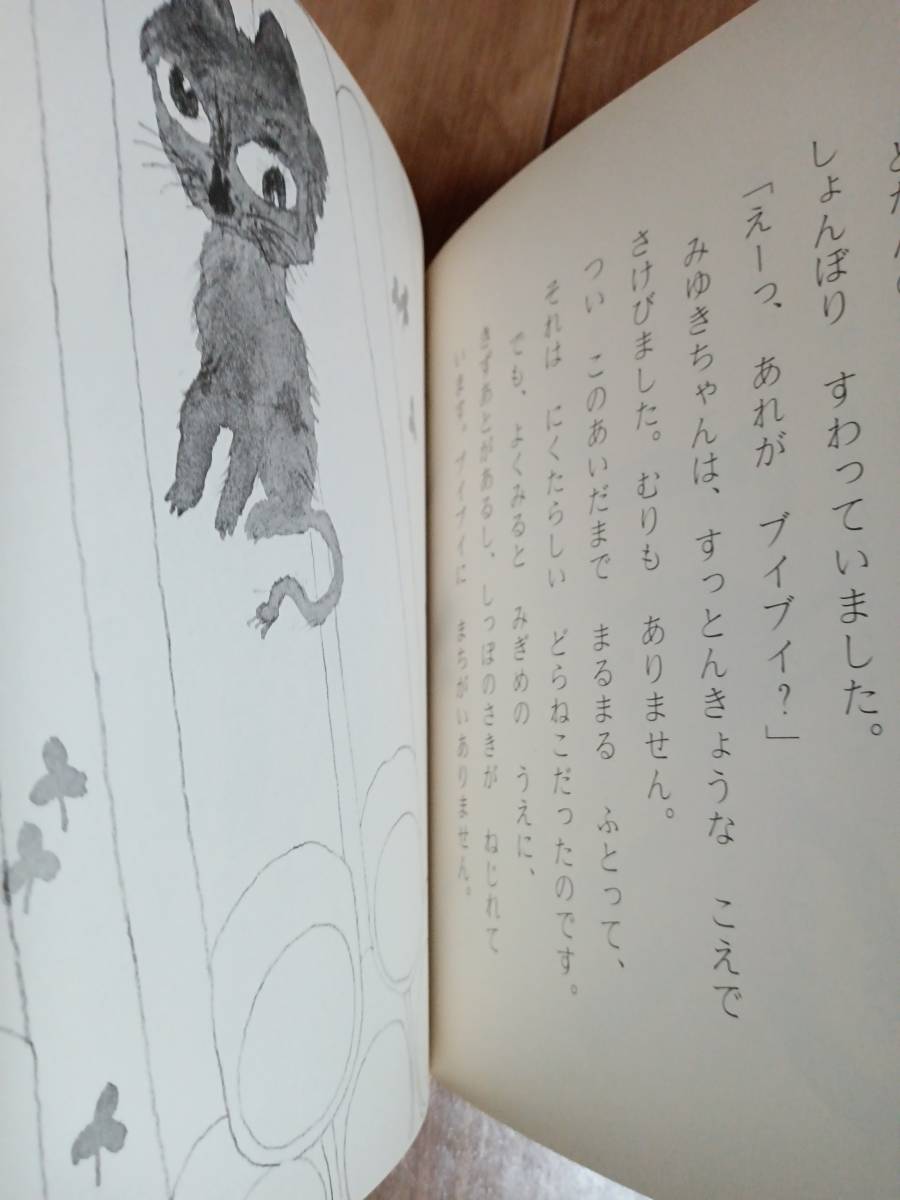 しょんぼり　すわっていました。
「えーっ、　あれが　ブイブイ？」
みゆきちゃんは、すっとんきょうな　こえで
さけびました。むりも　ありません。
つい　このあいだまで　まるまる　ふとって、
それは　にくたらしい　どらねこだったのです。
でも、よくみると　みぎめの　うえに、
きずあとがあるし、しっぽのさきが　ねじれて
います。ブイブイに　まちがいありません。